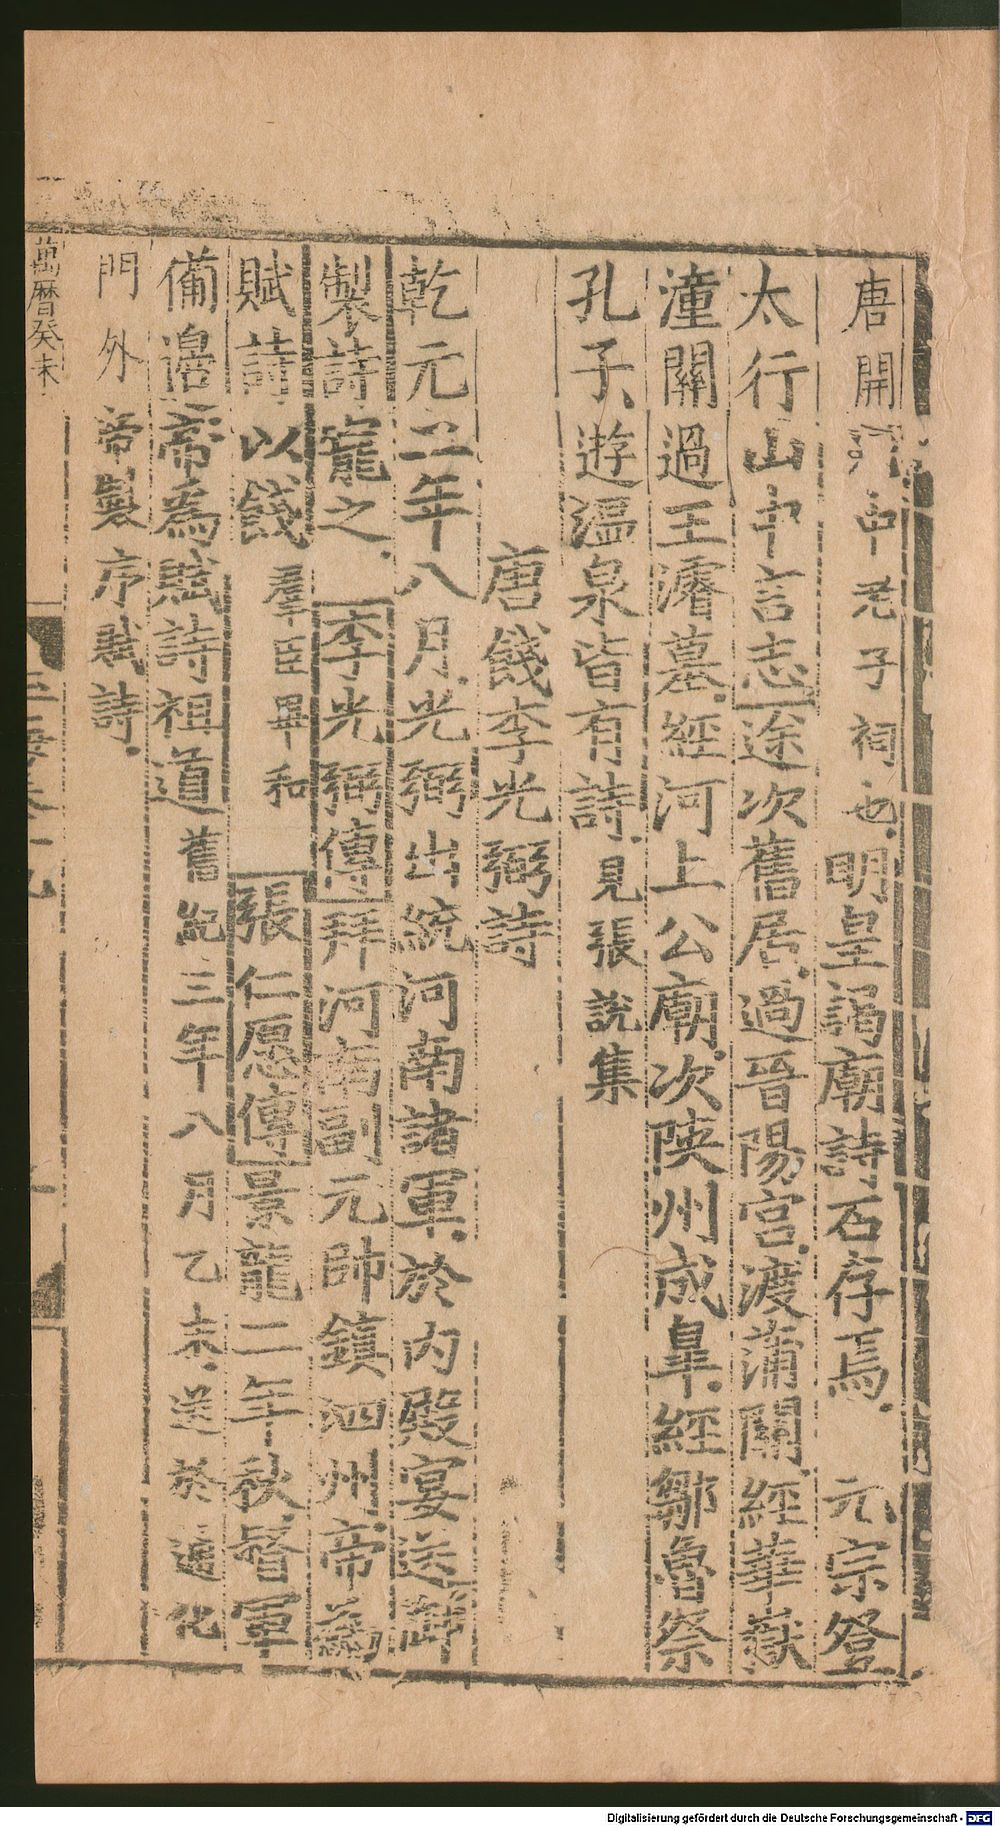 唐開河中老子祠也明皇謁廟詩石存焉　元宗登
太行山中言志途次舊居過晉陽宮渡蒲關經華嶽
潼關過王濬墓經河上公廟次陜州成臯經鄒魯祭
孔子遊温泉皆有詩見張説集
唐餞李光弼詩
乾元二年八月光弼出統河南諸軍於内殿宴送詩
製詩寵之　李光弼傳拜河南副元帥鎮泗州帝爲
賦詩以餞羣臣畢和　張仁愿傳景龍二年秋督軍
備邉帝爲賦詩祖道舊紀三年八月乙未送於通化
門外帝製序賦詩
萬曆癸未
玉海卷
Digitalisierung gefördert durch die Deutsche Forschungsgemeinschaft - DFG